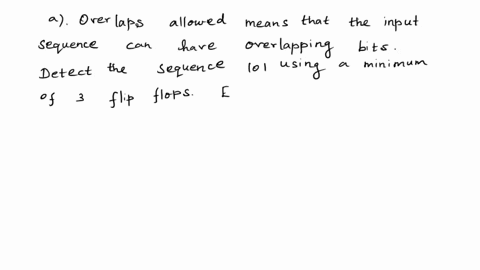 a). Overlaps allowed means that the input
sequence can have overlapping bits.
Detect the sequence 101 using a minimum
of 3 flip flops. [